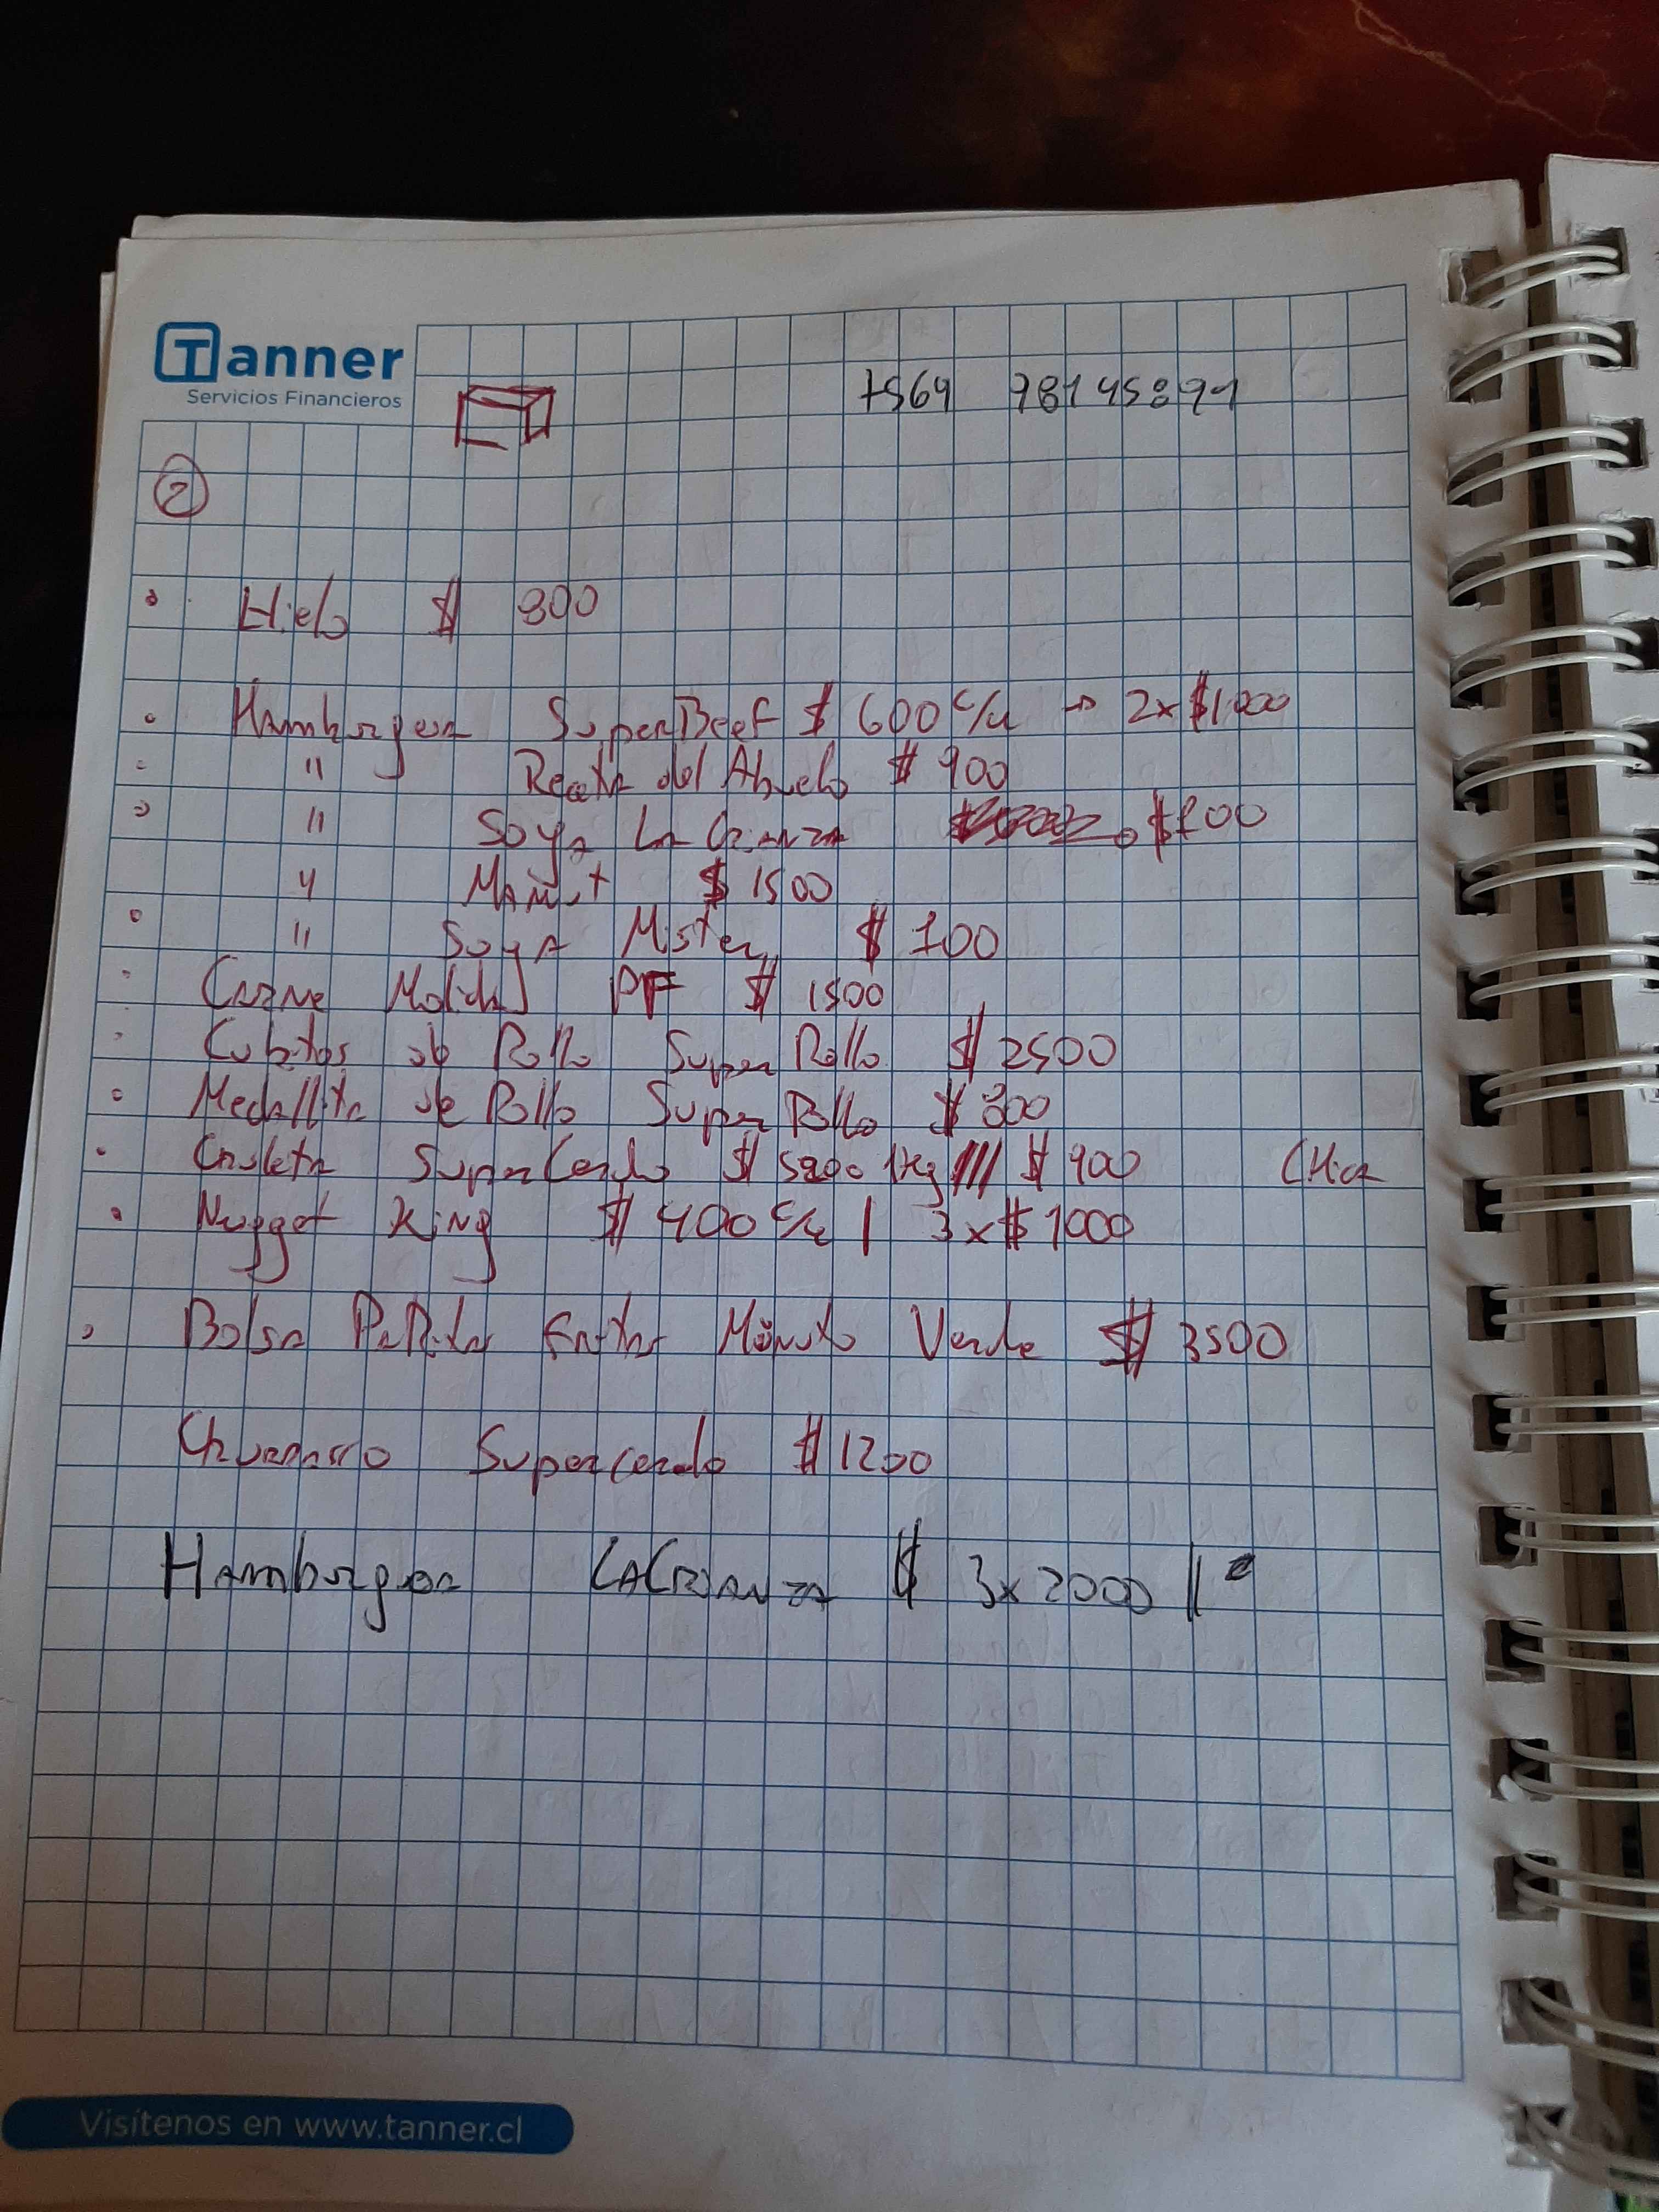 Tanner
Servicios Financieros
7564 78145891
2
Hielo $ 800
Hamburguesa SuperBeef $ 600 c/u → 2x$1.000
" Receta del Abuelo $ 900
" Soya La Crianza $800
" Mamut $ 1500
" Soya Mister $ 700
Carne Molida PF $ 1500
Cubitos de Pollo Super Pollo $ 2500
Medallita de Pollo Super Pollo $ 800
Chuleta SuperCerdo $ 1Kg $ 900 Chica
Nugget King $ 400 c/u | 3x$ 1000
Bolsa Papitas Fritas Minuto Verde $ 3500
Churrasco Supercerdo $ 1200
Hamburguesa LaCrianza $ 3x2000
Visítenos en www.tanner.cl